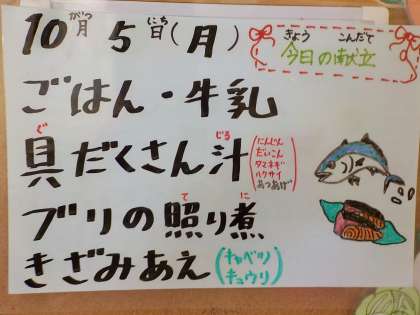 10月5日(月)
がつ にち
きょう こんだて
今日の献立
ごはん・牛乳
具だくさん汁
ぐ じる
(にんじん
だいこん
タマネギ
ハクサイ
あつあげ)
ブリの照り煮
て に
きざみあえ
(キャベツ
キュウリ)